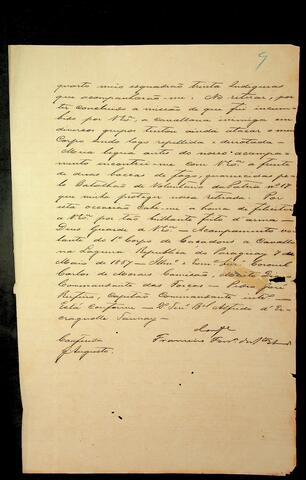 9
quarto meio esquadrão trinta Indigenas
que acompanharão-me. Ao retirar, por
ter concluido a missão de que fui incum-
bido por V.Exª, a cavallaria inimiga em
diversos grupos tentou ainda atacar o meu
Corpo sendo logo repellida e derrotada —
Meia legua antes do nosso acampa-
mento encontrei-me com V.Exª a frente
de duas boccas de fogo, guarnecidas pelo
Batalhão de Voluntarios da Patria nº 17
que vinha proteger nossa retirada. Por
esta occasião cabe-me a honra de felicitar
a V.Exª por tão brilhante feito d'arma —
Deus Guarde a V.Exª — Acampamento vo-
lante do 1º Corpo de Caçadores a Cavallo
na Laguna Republica do Paraguay 7 de
Maio de 1867 — Illmº e Exmº Snr. Coronel
Carlos de Moraes Camisão, Muito Digno
Commandante das Forças — Pedro José
Rufino, Capitão Commandante intº —
Está Conforme — O Tenº Bel Alfredo d'Es-
cragnolle Taunay —
Conferida
Augusto.
Conforme
Francisco